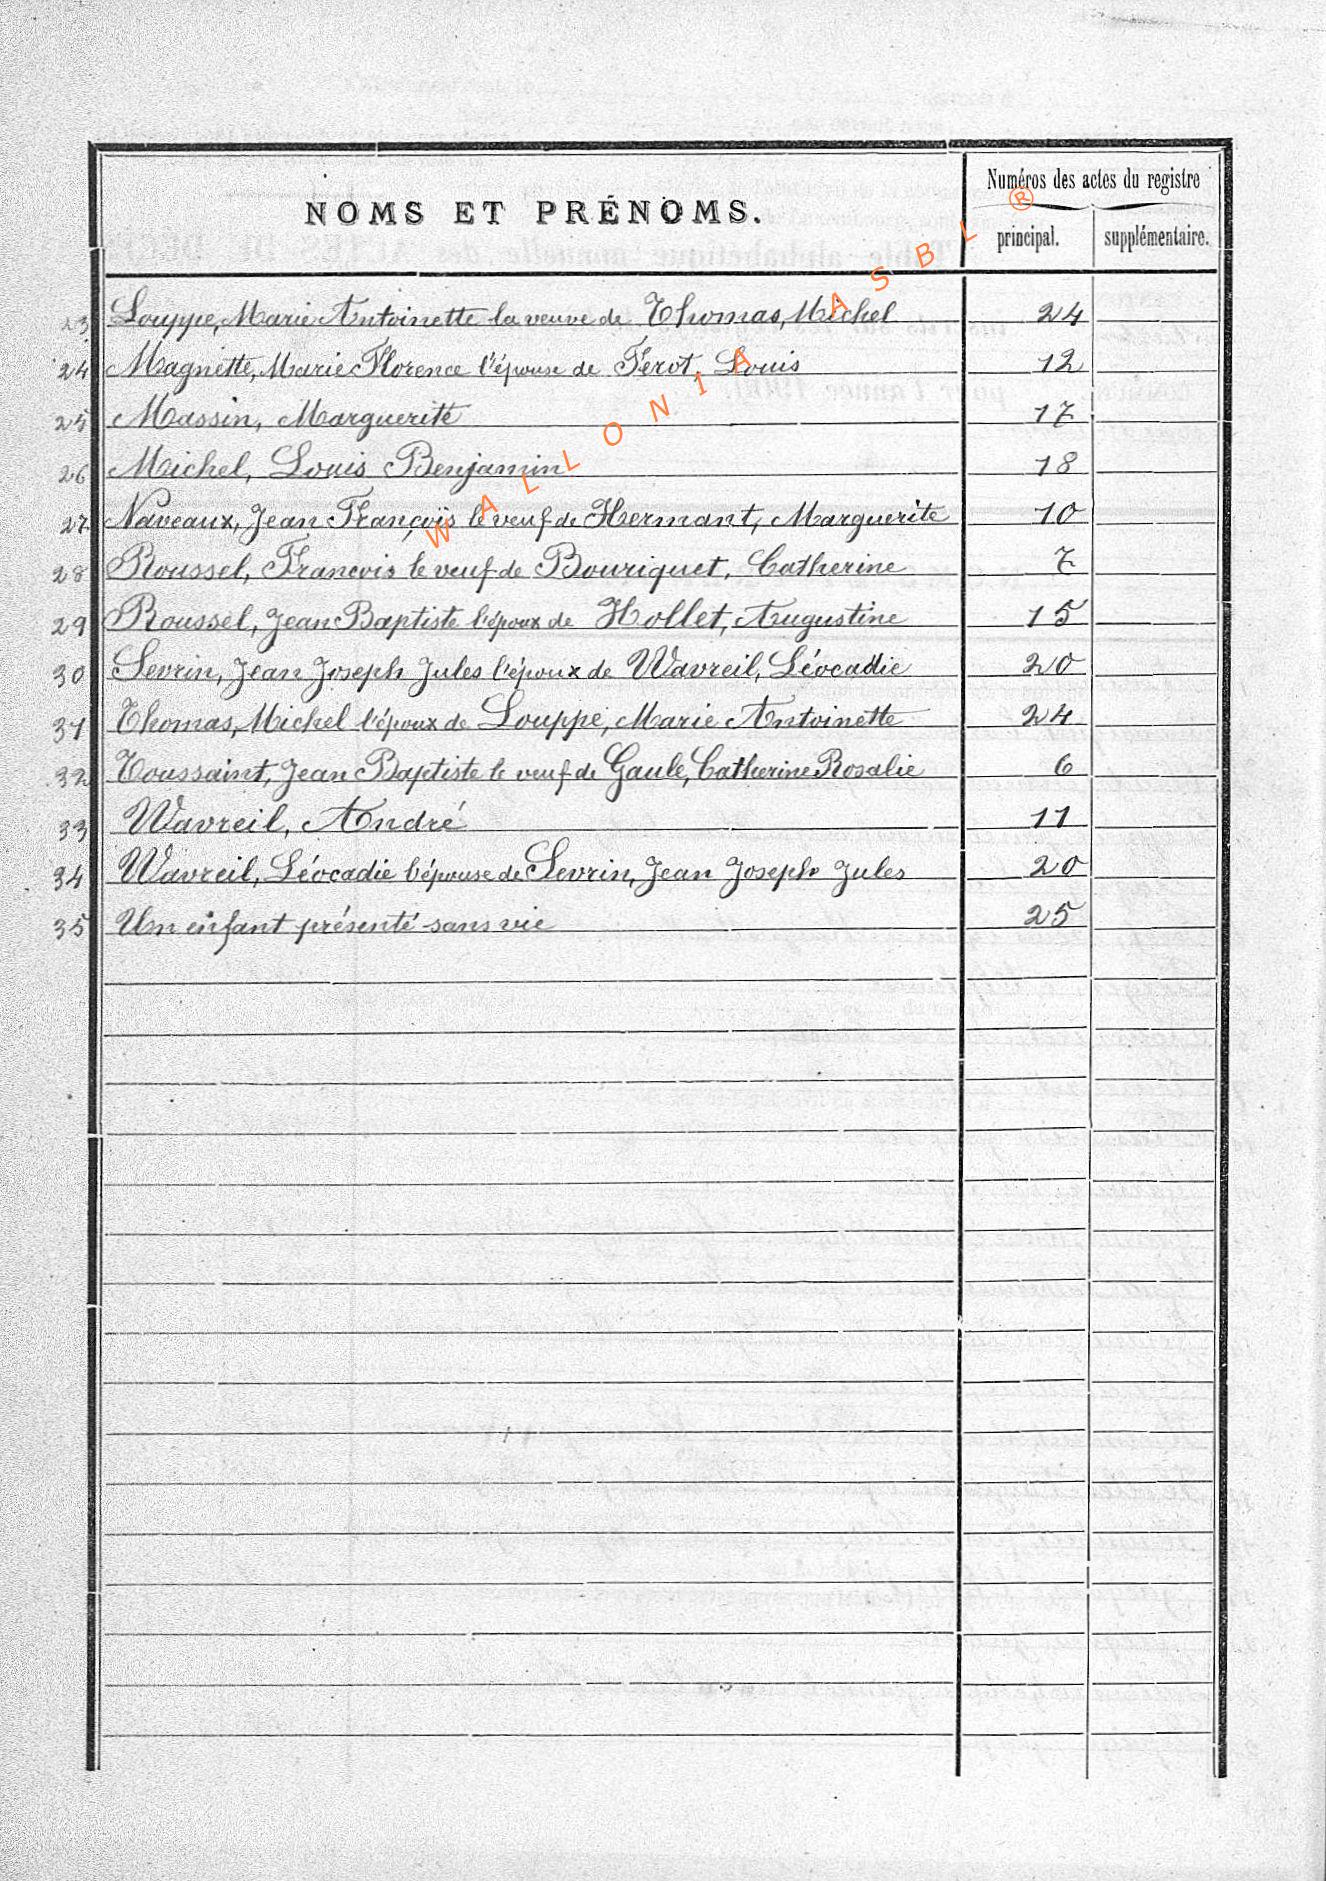 NOMS ET PRÉNOMS.
Numéros des actes du registre
principal.
supplémentaire.
WALLONIA ASBL ®
23 Louppe, Marie Antoinette la veuve de Thomas, Michel 24
24 Magnette, Marie Florence l'épouse de Férot, Louis 12
25 Massin, Marguerite 17
26 Michel, Louis Benjamin 18
27 Naveaux, Jean François le veuf de Hermant, Marguerite 10
28 Roussel, François le veuf de Bouriquet, Catherine 7
29 Roussel, Jean Baptiste l'époux de Hollet, Augustine 15
30 Sevrin, Jean Joseph Jules l'époux de Wavreil, Léocadie 20
31 Thomas, Michel l'époux de Louppe, Marie Antoinette 24
32 Toussaint, Jean Baptiste le veuf de Gaule, Catherine Rosalie 6
33 Wavreil, André 11
34 Wavreil, Léocadie l'épouse de Sevrin, Jean Joseph Jules 20
35 Un enfant présenté sans vie 25